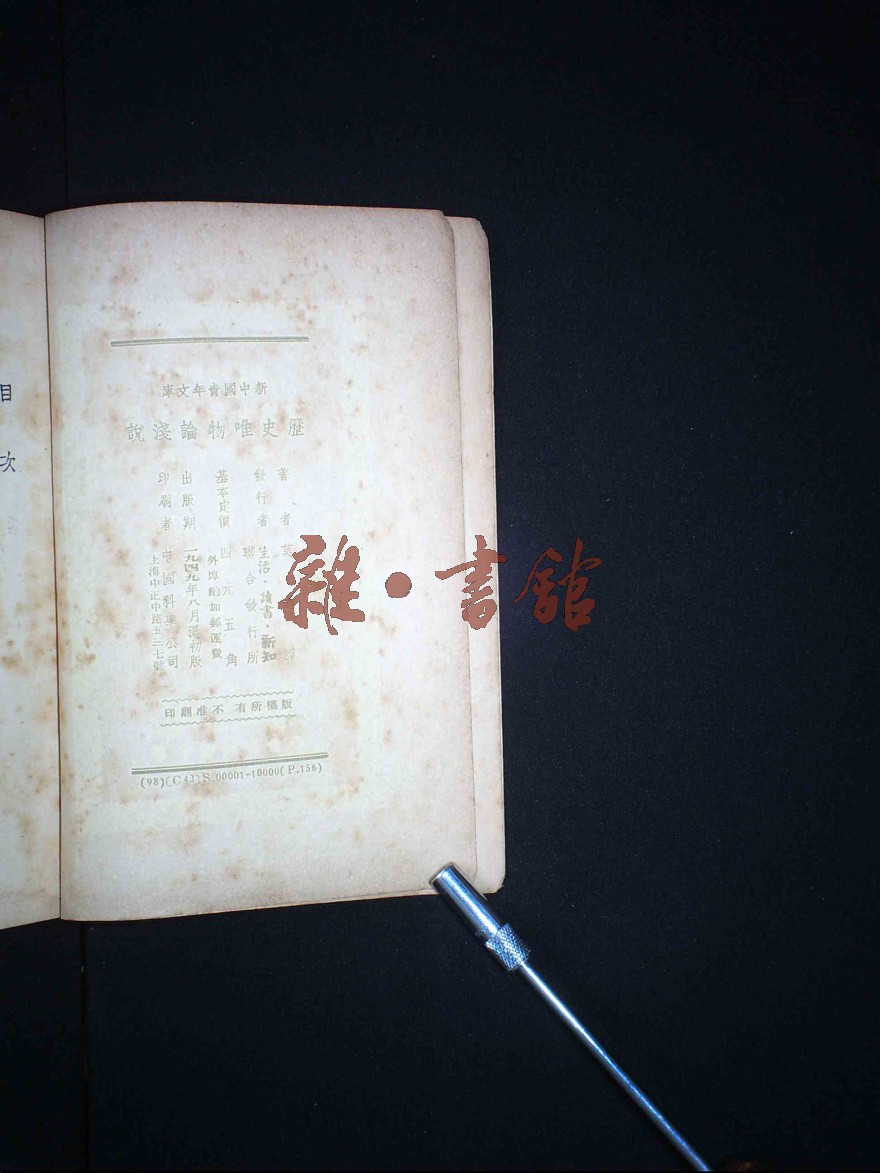 新中國青年文庫
歷史唯物論淺說
著者
發行者 生活·讀書·新知
聯合發行所
基本定價 四元五角
外埠酌加郵運費
出版期 一九四九年八月滬初版
印刷者 中國科學公司
上海中正中路五三七號
版權所有 不准翻印
(98)[C43]S.00001-10000(P.156)
目次
雜·書館